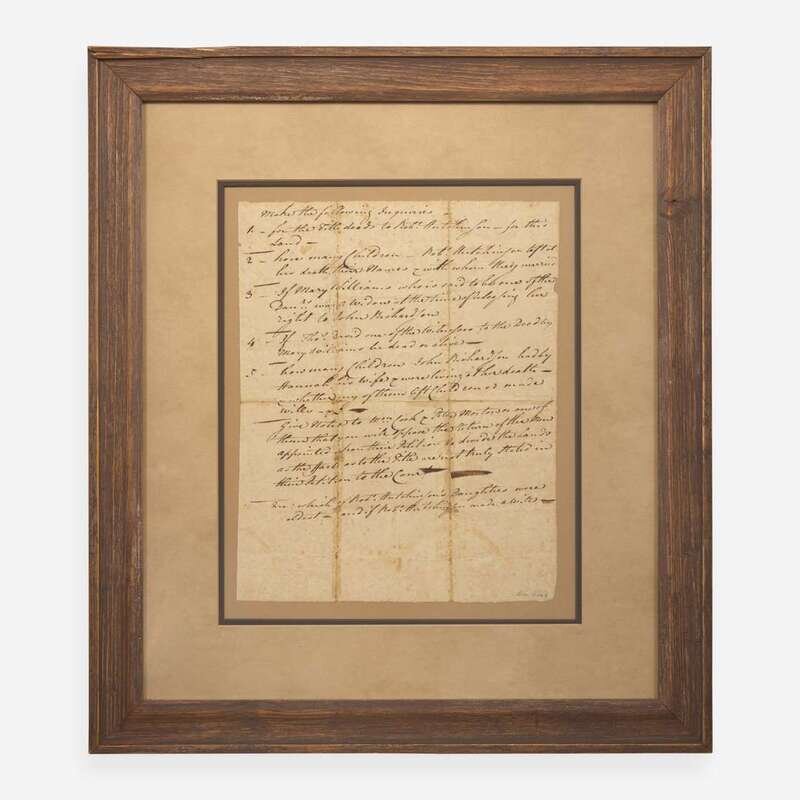 Make the following Inquiries –
1 – for the Title deeds to Robt. Hutchinson – for this
Land –
2 – how many Children – Robt. Hutchinson left at
his death their Names & with whom they married
3 – If Mary Williams who is said to be one of the
was a widow at the time of her
right to John Richardson
4 – If Thos. one of the Witnesses to the Deed by
Mary Williams be dead or alive –
5 – how many Children John Richardson had by
Hannah his wife & were living at her death –
& whether any of them left Children or made
wills –
Give Notice to & or one of
them that you will oppose the Return of the Men
appointed upon their Petition to divide the Lands
as the facts as to the Title are not truly stated in
their Petition to the Court
which of Robt. Hutchinson's Daughters were
oldest – and if Robt. Hutchinson made a Will –